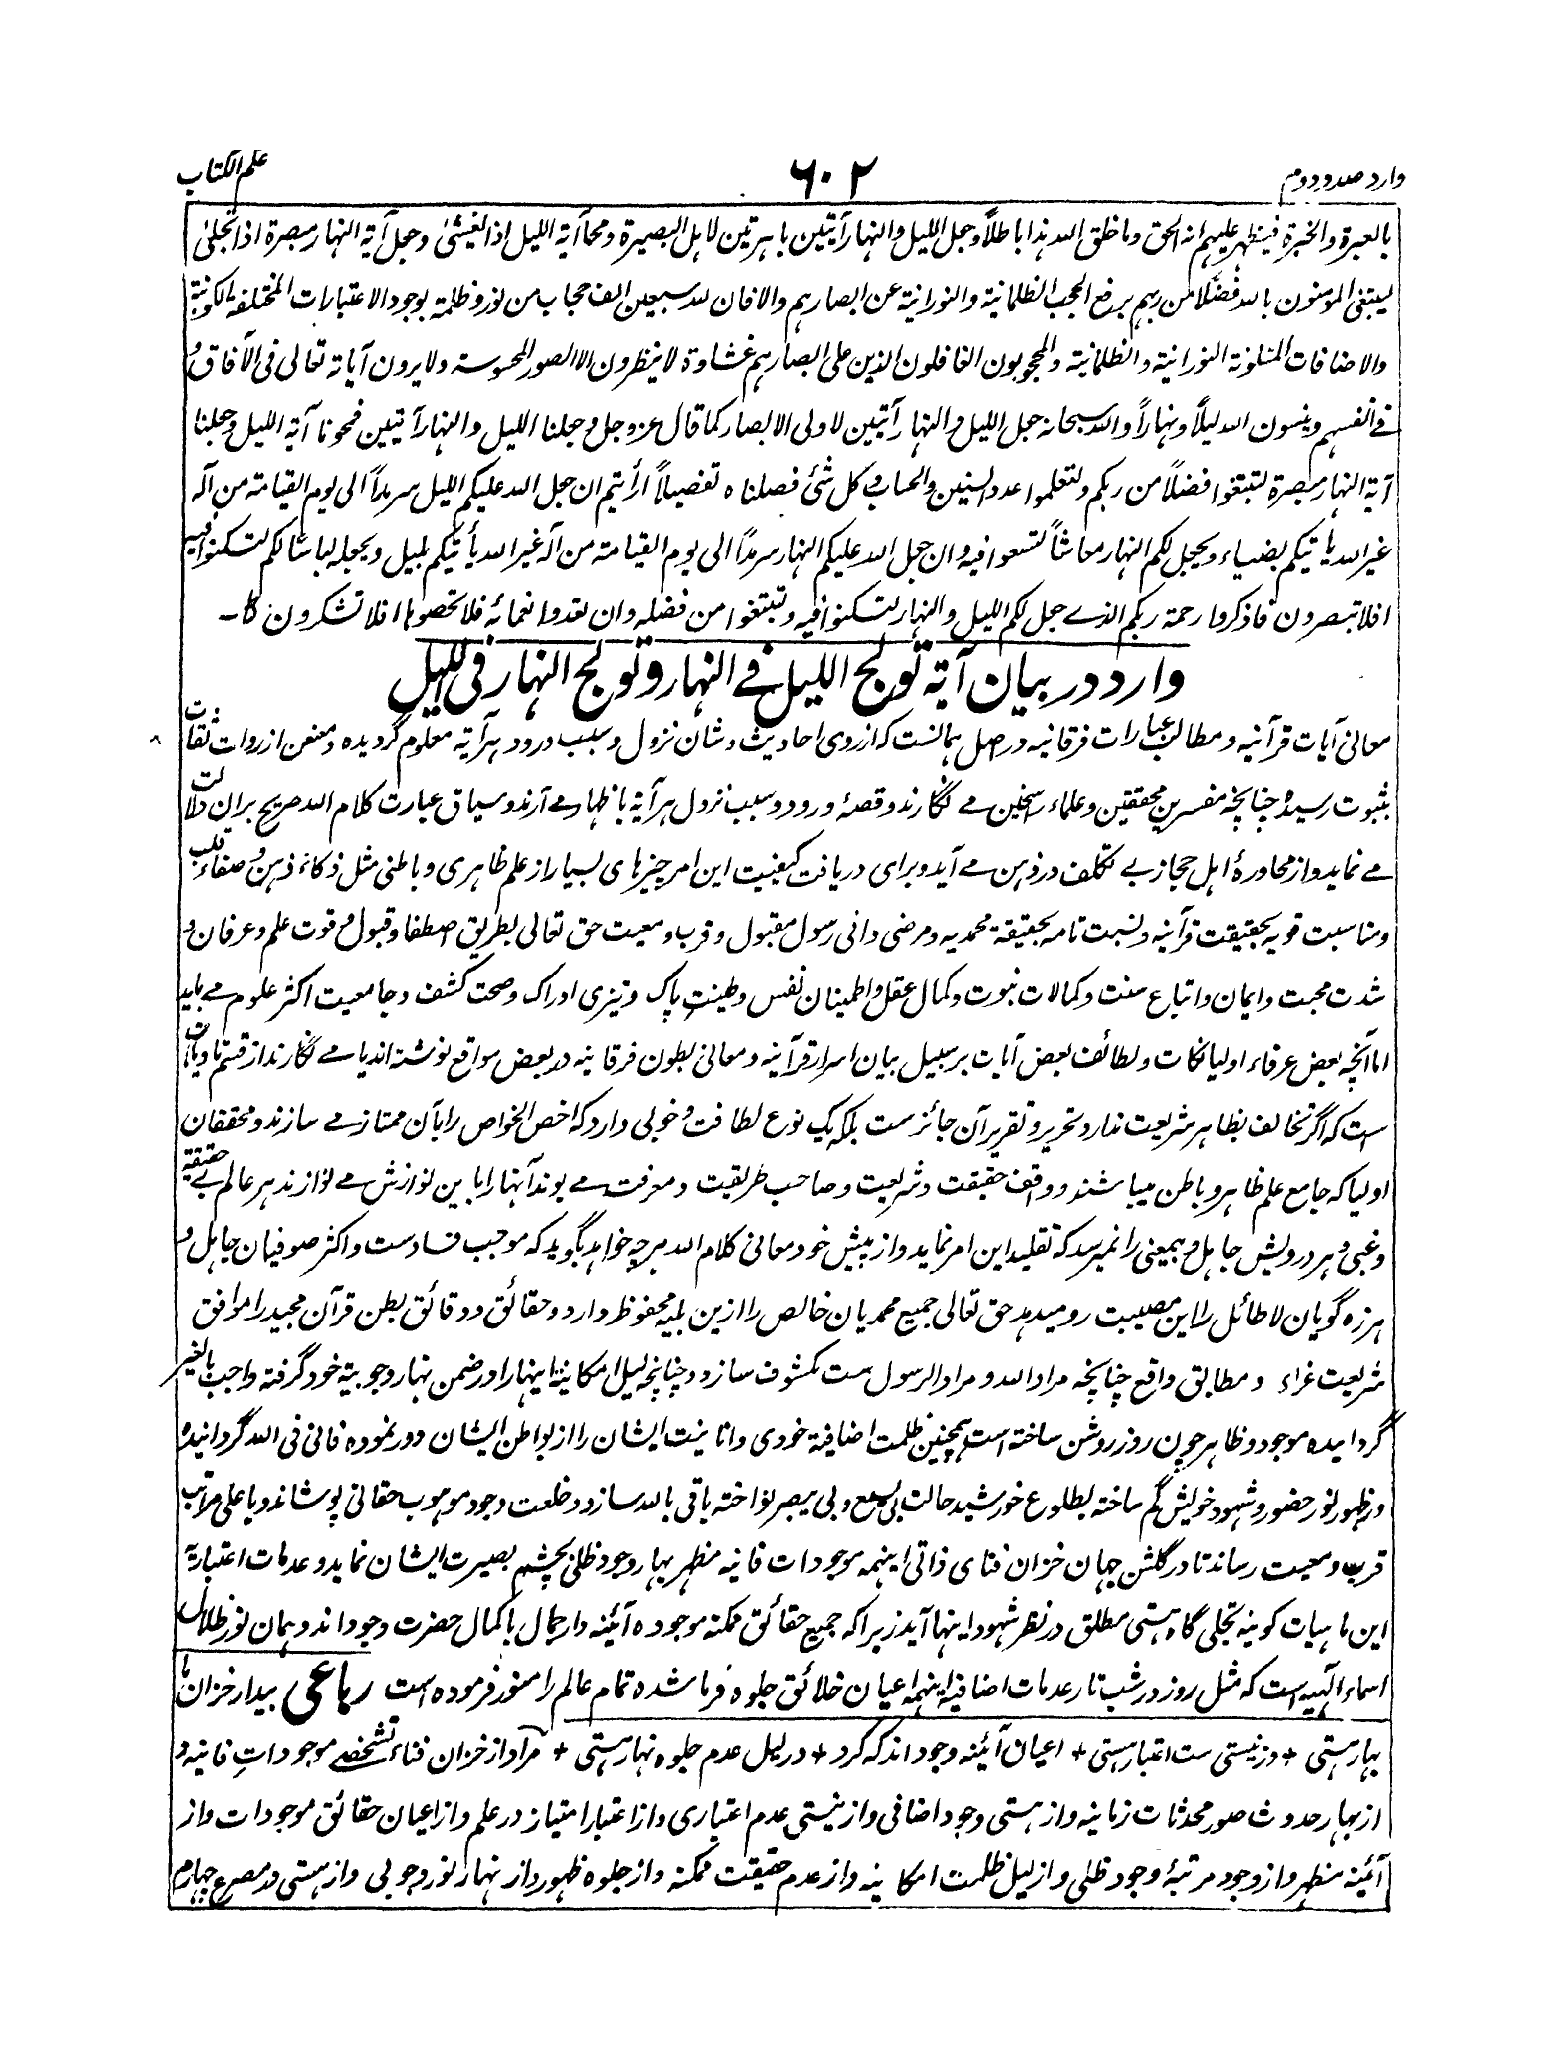 وارد صد و دوم ۶۰۲ علم الکتاب
بالعبرة والخبرة فینظهر علیهم انه الحق وما خلق الله هذا باطلاً وجعل اللیل والنهار آیتین باهرتین لاهل البصیرة ومحا آیة اللیل اذا یغشیٰ وجعل آیة النهار مبصرة اذا تجلیٰ
لیبتغی المؤمنون بالله فضلاً من ربهم برفع الحجب الظلمانیة والنورانیة عن ابصارهم والا فان لله سبعین الف حجاب من نور وظلمة بوجود الاعتبارات المختلفة الکونیة
والاضافات المتلونة النورانیة والظلمانیة والمحجوبون الغافلون الذین علی ابصارهم غشاوة لا ینظرون الا الصور المحسوسة ولا یرون آیاته تعالی فی الآفاق و
فی انفسهم وینسون الله لیلاً ونهاراً والله سبحانه جعل اللیل والنهار آیتین لاولی الابصار کما قال عز وجل وجعلنا اللیل والنهار آیتین فمحونا آیة اللیل وجعلنا
آیة النهار مبصرة لتبتغوا فضلاً من ربکم ولتعلموا عدد السنین والحساب وکل شئ فصلناه تفصیلاً ارأیتم ان جعل الله علیکم اللیل سرمداً الی یوم القیامة من آله
غیر الله یأتیکم بضیاء ویجعل لکم النهار معاشاً لتسعوا فیه وان جعل الله علیکم النهار سرمداً الی یوم القیامة من آله غیر الله یأتیکم بلیل ویجعله لباسا لکم لتسکنوا فیه
افلا تبصرون فاذکروا رحمة ربکم الذے جعل لکم اللیل والنهار لتسکنوا فیه وتبتغوا من فضله وان تعدوا نعمائه فلا تحصوها افلا تشکرون
وارد در بیان آیة تولج اللیل فے النهار وتولج النهار فی اللیل
معانی آیات قرآنیه و مطالب عبارات فرقانیه در اصل همانست که از روی احادیث و شان نزول و سبب ورود هر آیة معلوم گردیده و معنعن از روات ثقات
بثبوت رسیده چنانچه مفسرین محققین و علماء راسخین مے نگارند و قصهٔ ورود و سبب نزول هر آیة باظهار مے آرند و سیاق عبارت کلام الله صریح بران دلالت
مے نماید و از محاورهٔ اهل حجاز بے تکلف در ذهن مے آید و برای دریافت کیفیت این امر چیزهای بسیار از علم ظاهری و باطنی مثل ذکاء ذهن و صفاء قلب
و مناسبت قویه بحقیقت قرآنیه و نسبت تامه بحقیقة محمدیه و مرضی دانی رسول مقبول و قرب و معیت حق تعالی بطریق اصطفا و قبول و قوت علم و عرفان و
شدت محبت و ایمان و اتباع سنت و کمالات نبوت و کمال عقل و اطمینان نفس و طینت پاک و تیزی ادراک و صحت کشف و جامعیت اکثر علوم مے باید
اما آنچه بعض عرفاء اولیا نکات و لطائف بعض آیات بر سبیل بیان اسرار قرآنیه و معانی بطون فرقانیه در بعض مواقع نوشته اند یا مے نگارند از قسم تاویلات
است که اگر تخالف بظاهر شریعت ندارد تحریر و تقریر آن جائز ست بلکه یک نوع لطافت و خوبی دارد که اخص الخواص را بآن ممتاز مے سازند و محققان
اولیا که جامع علم ظاهر و باطن میباشند و واقف حقیقت و شریعت و صاحب طریقت و معرفت مے بوند آنها را باین نوازش مے نوازند هر عالم بے حقیقة
و غبی و هر درویش جاهل و بیمعنی را نمیرسد که تقلید این امر نماید و از پیش خود معانی کلام الله هر چه خواهد بگوید که موجب فساد ست و اکثر صوفیان جاهل و
هرزه گویان لاطائل را این مصیبت رو میدهد حق تعالی جمیع محمدیان خالص را ازین بلیه محفوظ دارد و حقائق و دقائق بطن قرآن مجید را موافق
شریعت غراء و مطابق واقع چنانچه مراد الله و مراد الرسول ست مکشوف سازد و چنانچه لیل امکانیة اینها را در ضمن نهار وجوبیة خود گرفته واجب بالغیر
گردانیده موجود و ظاهر چون روز روشن ساخته است همچنین ظلمت اضافیة خودی و انانیت ایشان را از بواطن ایشان دور نموده فانی فی الله گردانیده
و ظهور نور حضور و شهود خویش گم ساخته بطلوع خورشید حالت بی یسمع و بی یبصر نواخته باقی بالله سازد و خلعت وجود موهوب حقانی پوشاند و باعلی مراتب
قرب و معیت رساند تا در گلشن جهان خزان فنای ذاتی اینهمه موجودات فانیه مظهر بهار وجود ظلی بچشم بصیرت ایشان نماید و عدمات اعتباریة
این ماهیات کونیه تجلی گاه هستی مطلق در نظر شهود اینها آید زیرا که جمیع حقائق ممکنه موجوده آئینه دار جمال باکمال حضرت وجود اند و همان نور ظلال
اسماء الٓهیه است که مثل روز در شب تار عدمات اضافیة اینهمه اعیان خلائق جلوه فرما شده تمام عالم را منور فرموده است رباعی بیدار خزان ما
بهار هستی + در نیستی ست اعتبار هستی + اعیان آئینه وجود اند که کرد + در لیل عدم جلوه نهار هستی + مراد از خزان فناء تشخصے موجوداتِ فانیه و
از بهار حدوث صور محدثات زمانیه و از هستی وجود اضافی و از نیستی عدم اعتباری و از اعتبار امتیاز در علم و از اعیان حقائق موجودات و از
آئینه مظهر و از وجود مرتبهٔ وجود ظلی و از لیل ظلمت امکانیه و از عدم حقیقت ممکنه و از جلوه ظهور و از نهار نور وجوبی و از هستی در مصرع چهارم